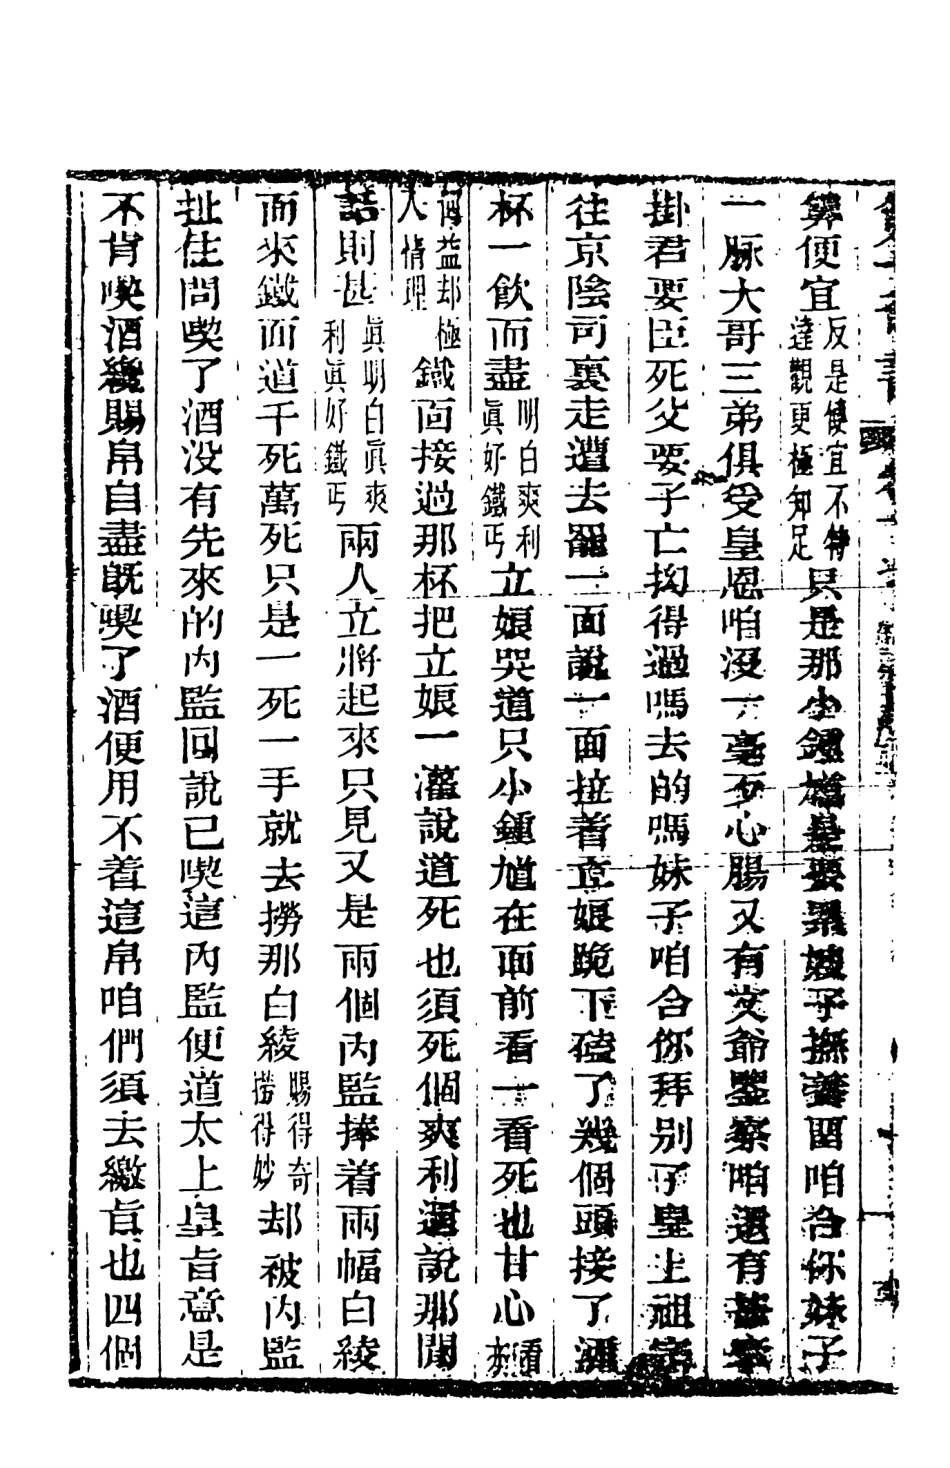 算便宜反是便宜不特達觀更極知足只是那小鍾馗是要累嫂子撫養留咱合你妹子
一脉大哥三弟俱受皇恩咱没一毫歹心腸又有爻爺鑒察咱還有甚牽
掛君要臣死父要子亡拗得過嗎去的嗎妹子咱合你拜别了皇上祖宗
往京陰司裏走遭去罷一面說一面拉着立娘跪下磕了幾個頭接了酒
杯一飲而盡明白爽利眞好鐵丐立娘哭道只小鍾馗在面前看一看死也甘心看亦
何益却極人情理鐵面接過那杯把立娘一灌說道死也須死個爽利還說那閒
話則甚眞明白眞爽利眞好鐵丐兩人立將起來只見又是兩個內監捧着兩幅白綾
而來鐵面道千死萬死只是一死一手就去撈那白綾賜得奇撈得妙却被內監
扯住問喫了酒没有先來的內監回說已喫這內監便道太上皇旨意是
不肯喫酒纔賜帛自盡既喫了酒便用不着這帛咱們須去繳旨也四個